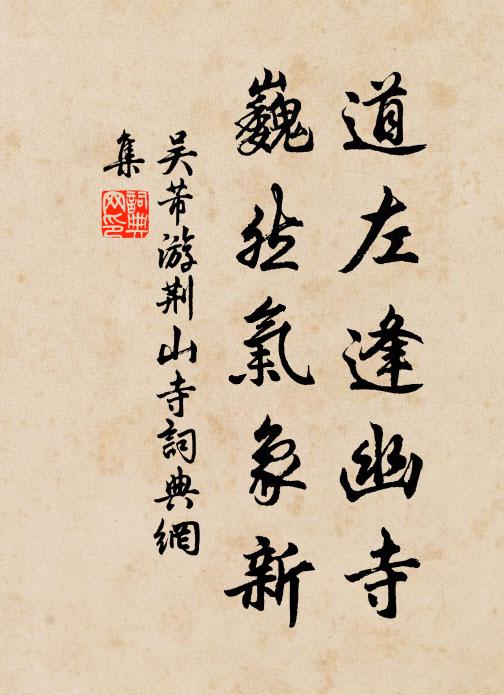 道左逢幽寺
巍然氣象新
吴芾游荆山寺詞典網
集
詞典
网印